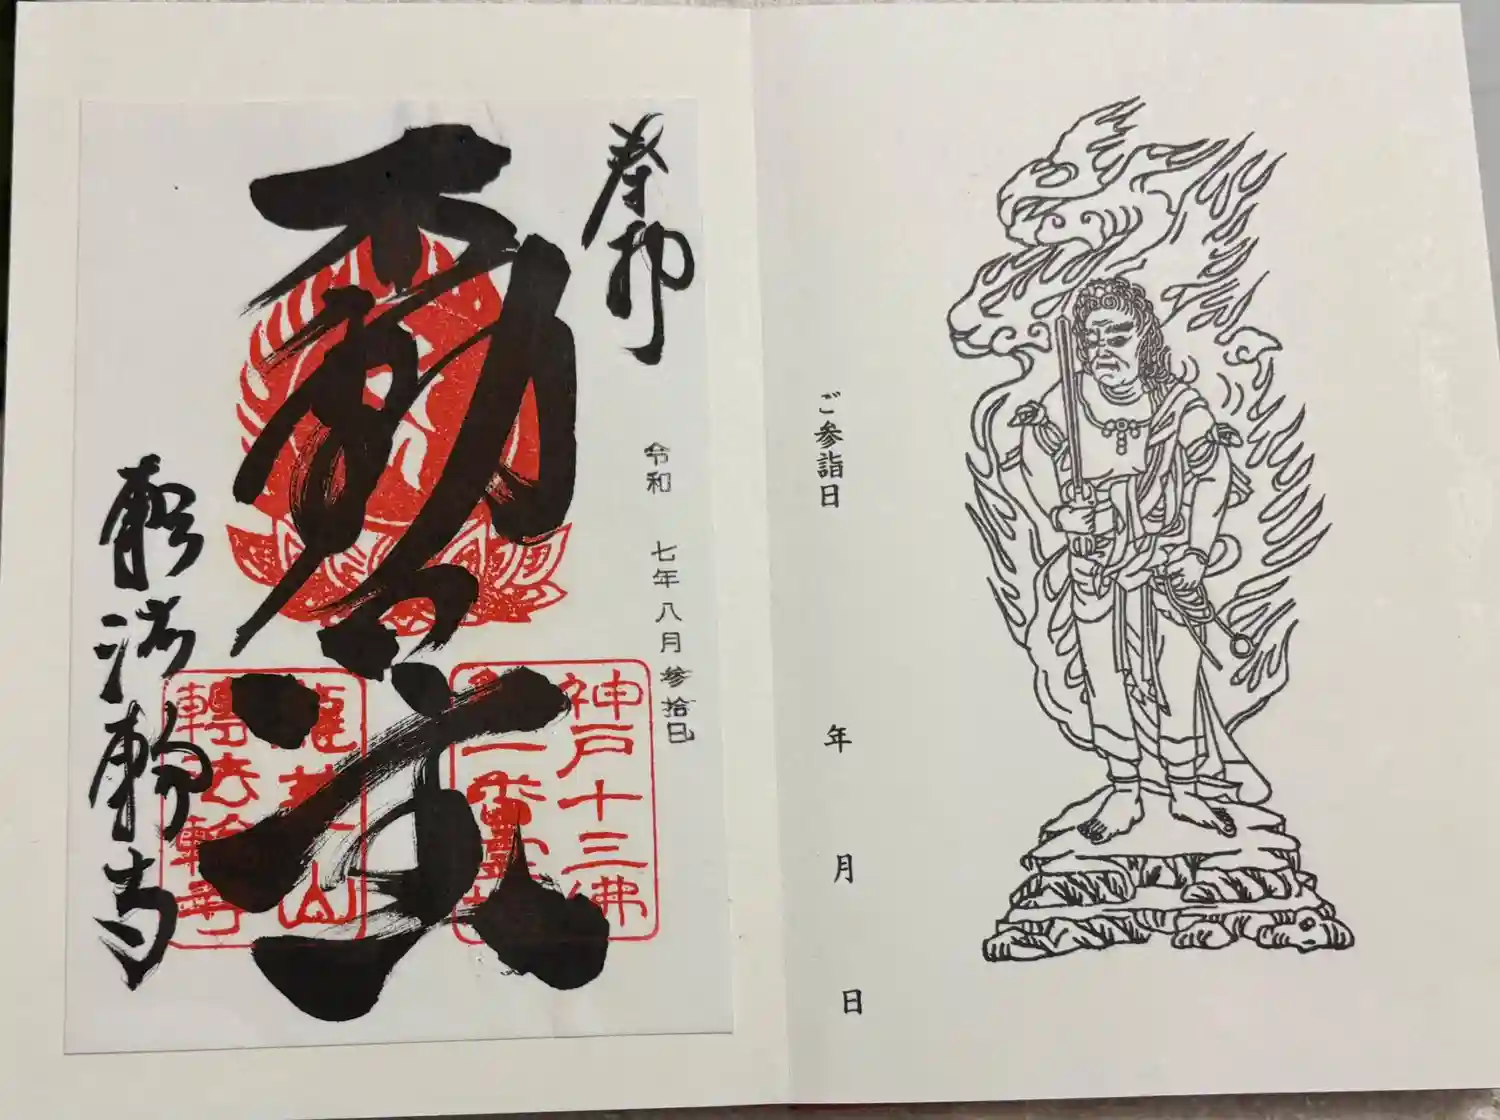 ご参詣日　年　月　日
奉拝
令和 七年八月参拾日
不動
神戸十三佛
第一番霊場
龍華山
轉法輪寺
轉法輪寺